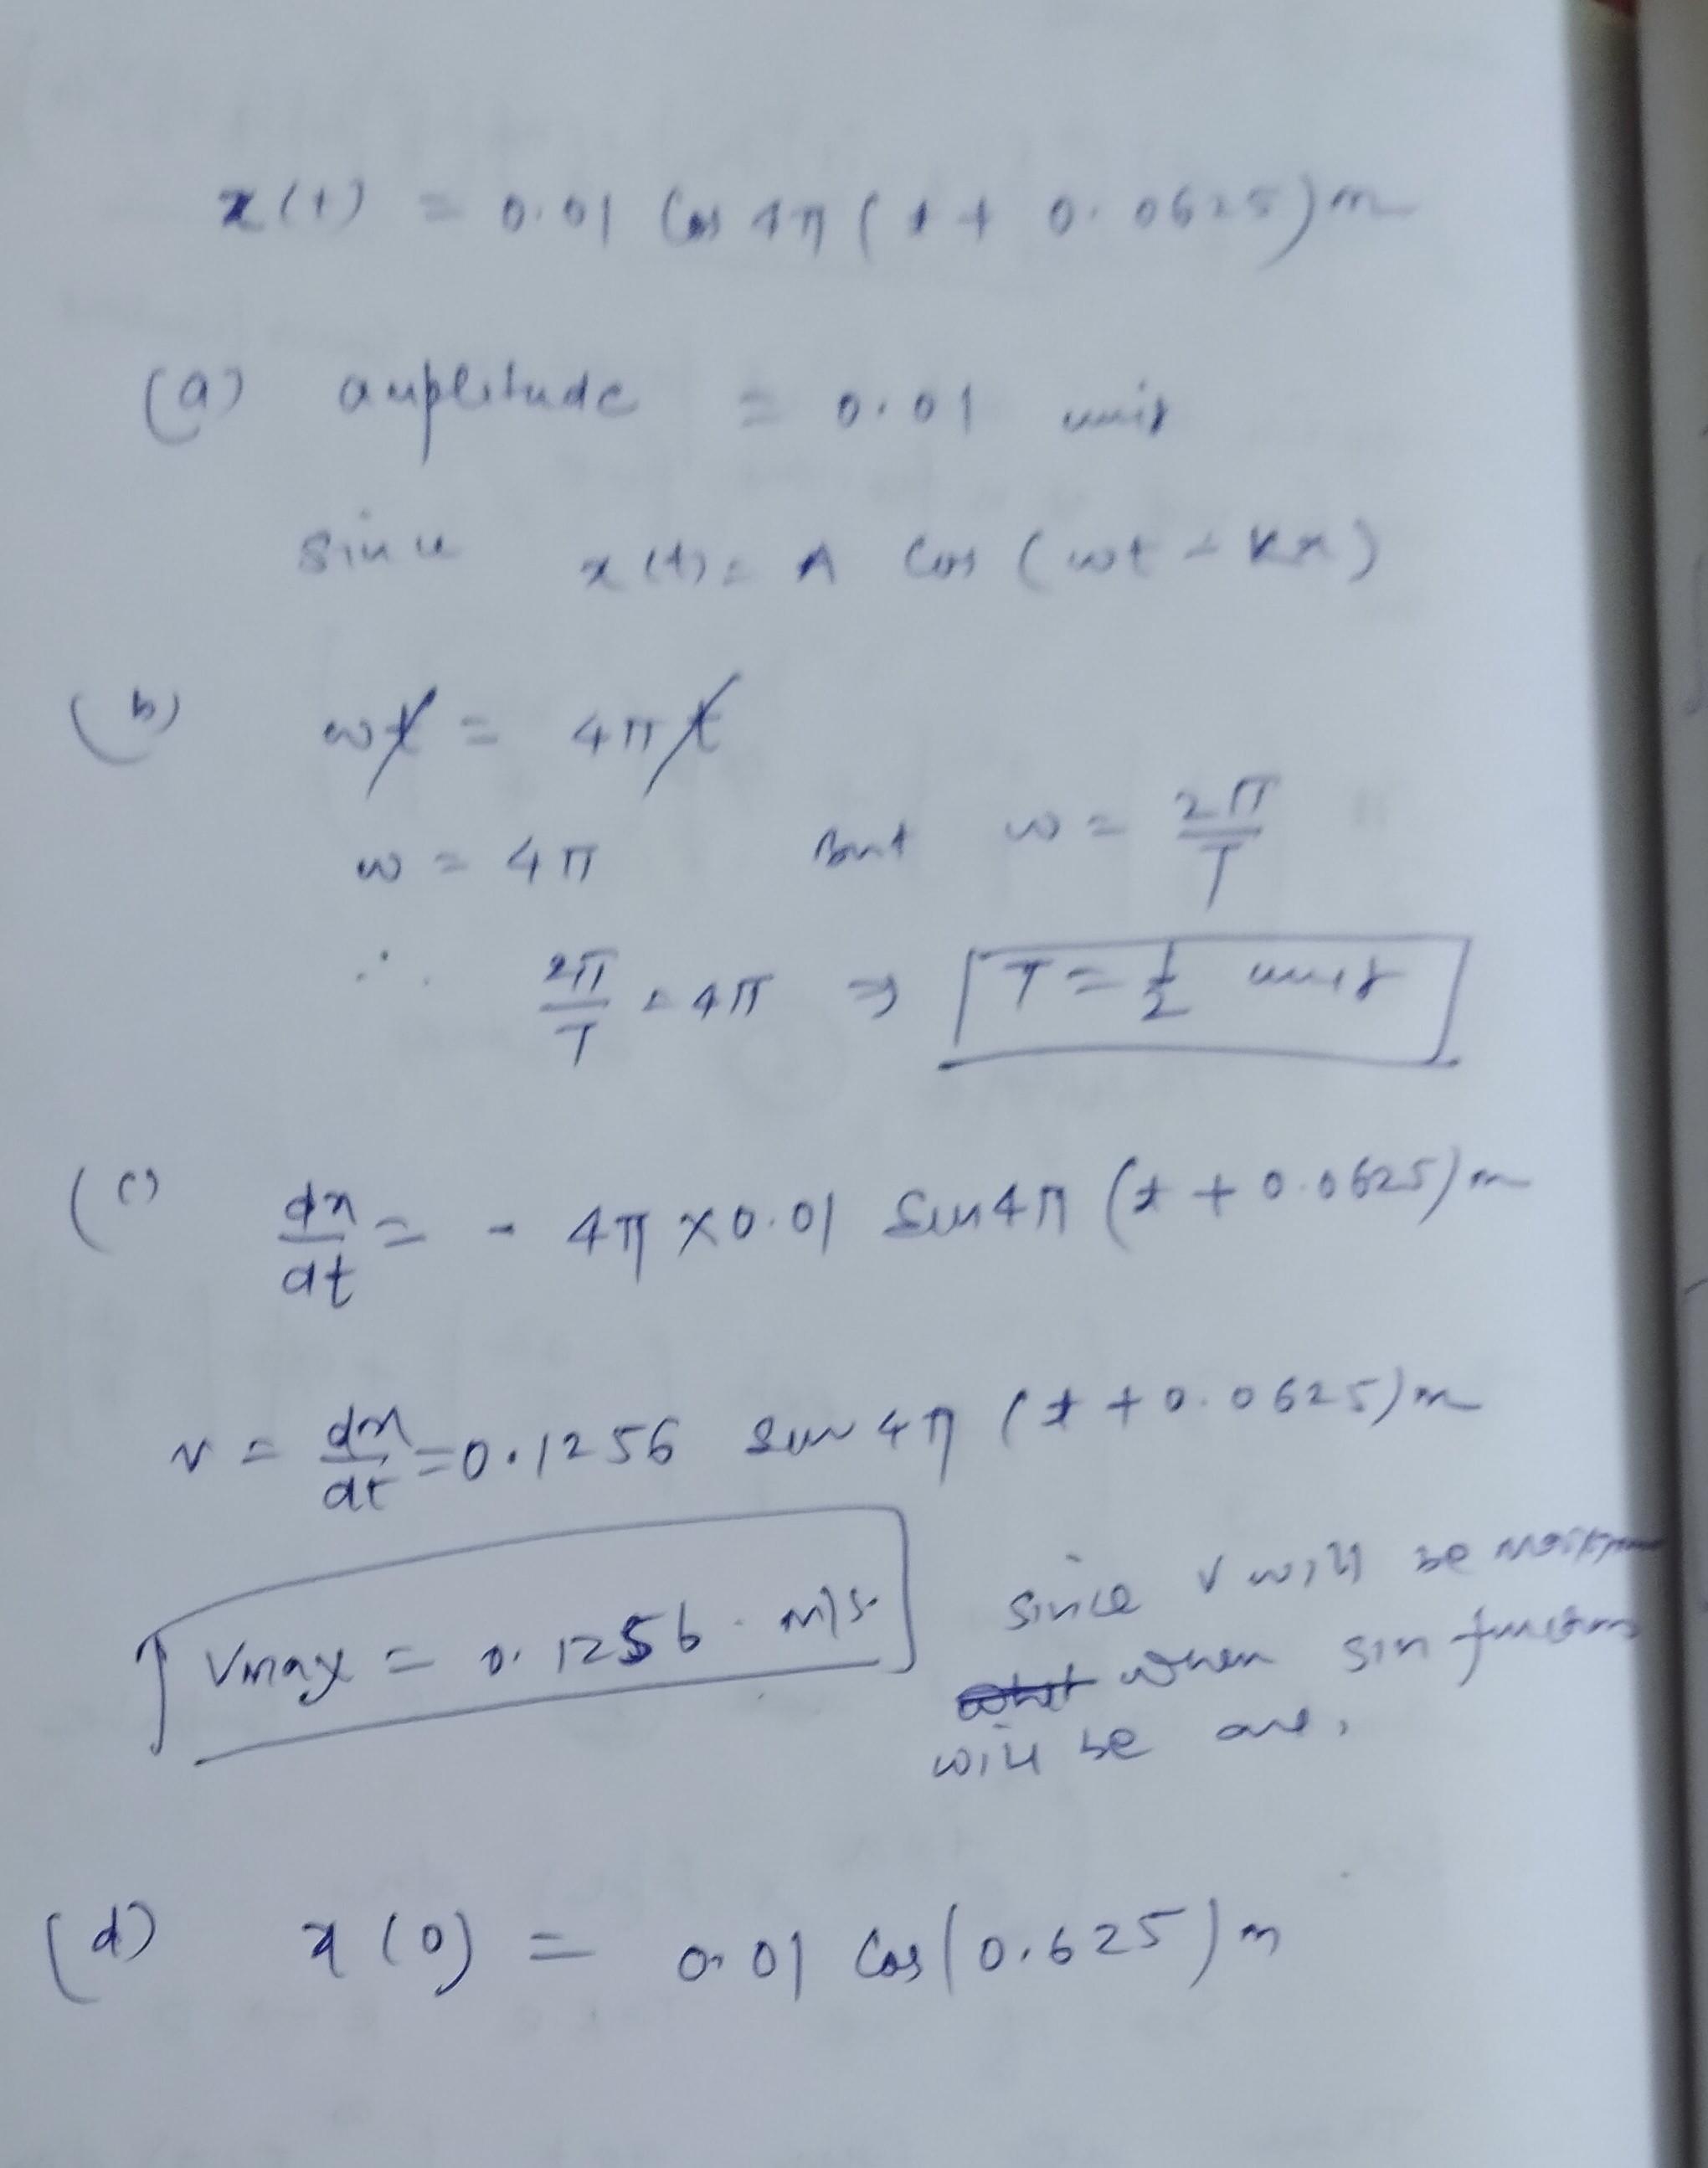 x(t) = 0.01 Cos 4π (t + 0.0625) m
(a) amplitude = 0.01 unit
since x(t) = A Cos (wt - kx)
(b) wt = 4πt
w = 4π But w = 2π/T
∴ 2π/T = 4π ⇒ T = 1/2 unit
(c) dx/dt = - 4π × 0.01 Sin 4π (t + 0.0625) m
v = dx/dt = 0.1256 Sin 4π (t + 0.0625) m
Vmax = 0.1256 m/s. since v will be
when sin function
will be one.
(d) x(0) = 0.01 Cos (0.625) m